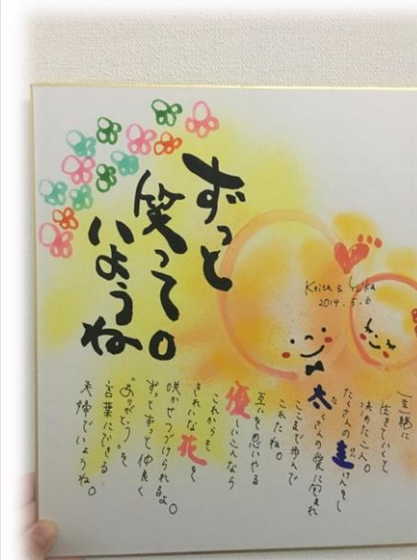 ずっと
笑って。
いようね
Keita & Yuka
2014.5.6
一緒に
生きていくと
決めた二人。
たくさんの圭けんをし
太くさんの愛に包まれ
ここまで歩んで
これたね。
互いを思いやる
優しい二人なら
これからも
きれいな花を
咲かせつづけられるよ。
ずっとずっと仲良く
"ありがとう"を
言葉にできる
夫婦でいようね。